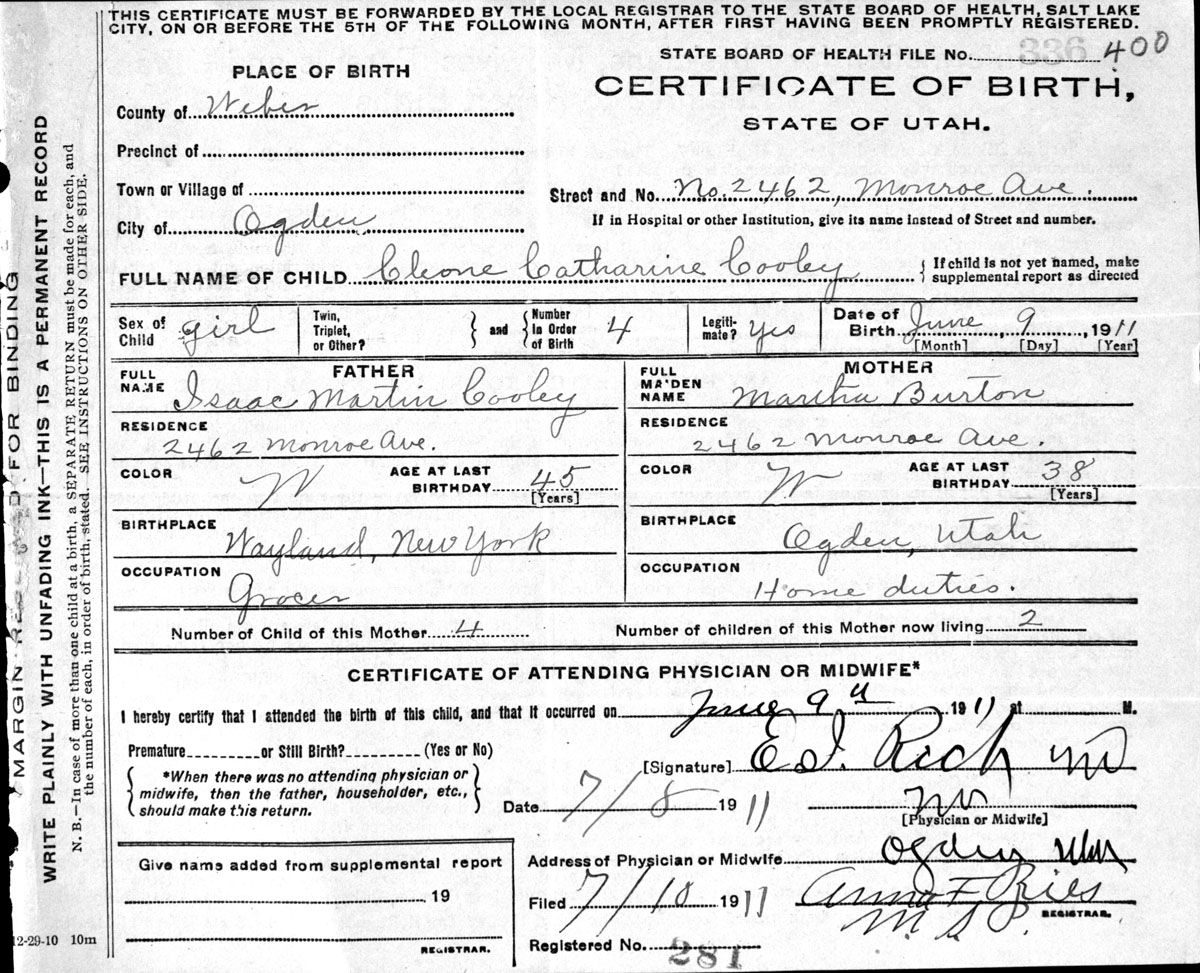 THIS CERTIFICATE MUST BE FORWARDED BY THE LOCAL REGISTRAR TO THE STATE BOARD OF HEALTH, SALT LAKE
CITY, ON OR BEFORE THE 5TH OF THE FOLLOWING MONTH, AFTER FIRST HAVING BEEN PROMPTLY REGISTERED.
STATE BOARD OF HEALTH FILE No. 336 400
PLACE OF BIRTH
CERTIFICATE OF BIRTH,
STATE OF UTAH.
County of Weber
Precinct of
Town or Village of
Street and No. No. 2462, Monroe Ave.
City of Ogden
If in Hospital or other Institution, give its name instead of Street and number.
FULL NAME OF CHILD Cleone Catharine Cooley
{ If child is not yet named, make
supplemental report as directed
Sex of
Child girl
Twin,
Triplet,
or Other?
} and {
Number
in Order
of Birth 4
Legiti-
mate? Yes
Date of
Birth June 9, 1911
[Month] [Day] [Year]
FATHER
FULL
NAME Isaac Martin Cooley
RESIDENCE
2462 Monroe Ave.
COLOR W
AGE AT LAST
BIRTHDAY 45
[Years]
BIRTHPLACE
Wayland, New York
OCCUPATION
Grocer
MOTHER
FULL
MA'DEN
NAME Martha Burton
RESIDENCE
2462 Monroe Ave.
COLOR W
AGE AT LAST
BIRTHDAY 38
[Years]
BIRTHPLACE
Ogden, Utah
OCCUPATION
Home duties.
Number of Child of this Mother 4
Number of children of this Mother now living 2
CERTIFICATE OF ATTENDING PHYSICIAN OR MIDWIFE*
I hereby certify that I attended the birth of this child, and that it occurred on June 9th 1911 at M.
Premature or Still Birth? (Yes or No)
{ *When there was no attending physician or
midwife, then the father, householder, etc.,
should make this return. }
[Signature] E. I. Rich MD
Date 7/8 1911
[Physician or Midwife]
Address of Physician or Midwife Ogden Utah
Filed 7/10 1911
Anna F. Ries
REGISTRAR.
Registered No. 281
Give name added from supplemental report
, 19
REGISTRAR.
12-29-10 10m
MARGIN RESERVED FOR BINDING
WRITE PLAINLY WITH UNFADING INK—THIS IS A PERMANENT RECORD
N. B.—In case of more than one child at a birth, a SEPARATE RETURN must be made for each, and
the number of each, in order of birth, stated. SEE INSTRUCTIONS ON OTHER SIDE.